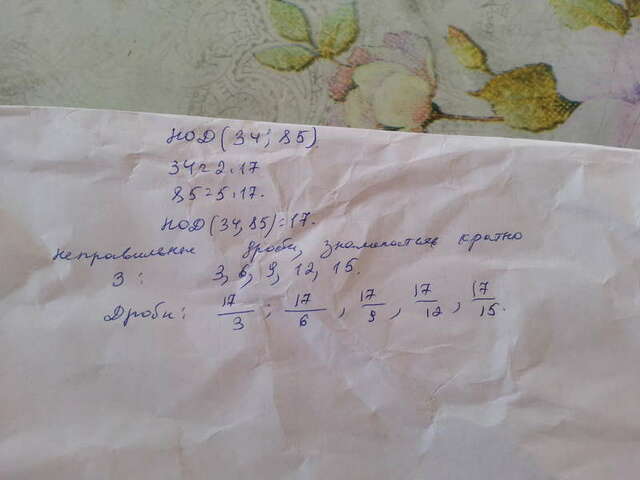 НОД(34; 85)
34=2.17
85=5.17.
НОД(34,85)=17.
Неправильные дроби, знаменатель кратно
3: 3, 6, 9, 12, 15.
Дроби: 17/3; 17/6, 17/9, 17/12, 17/15.